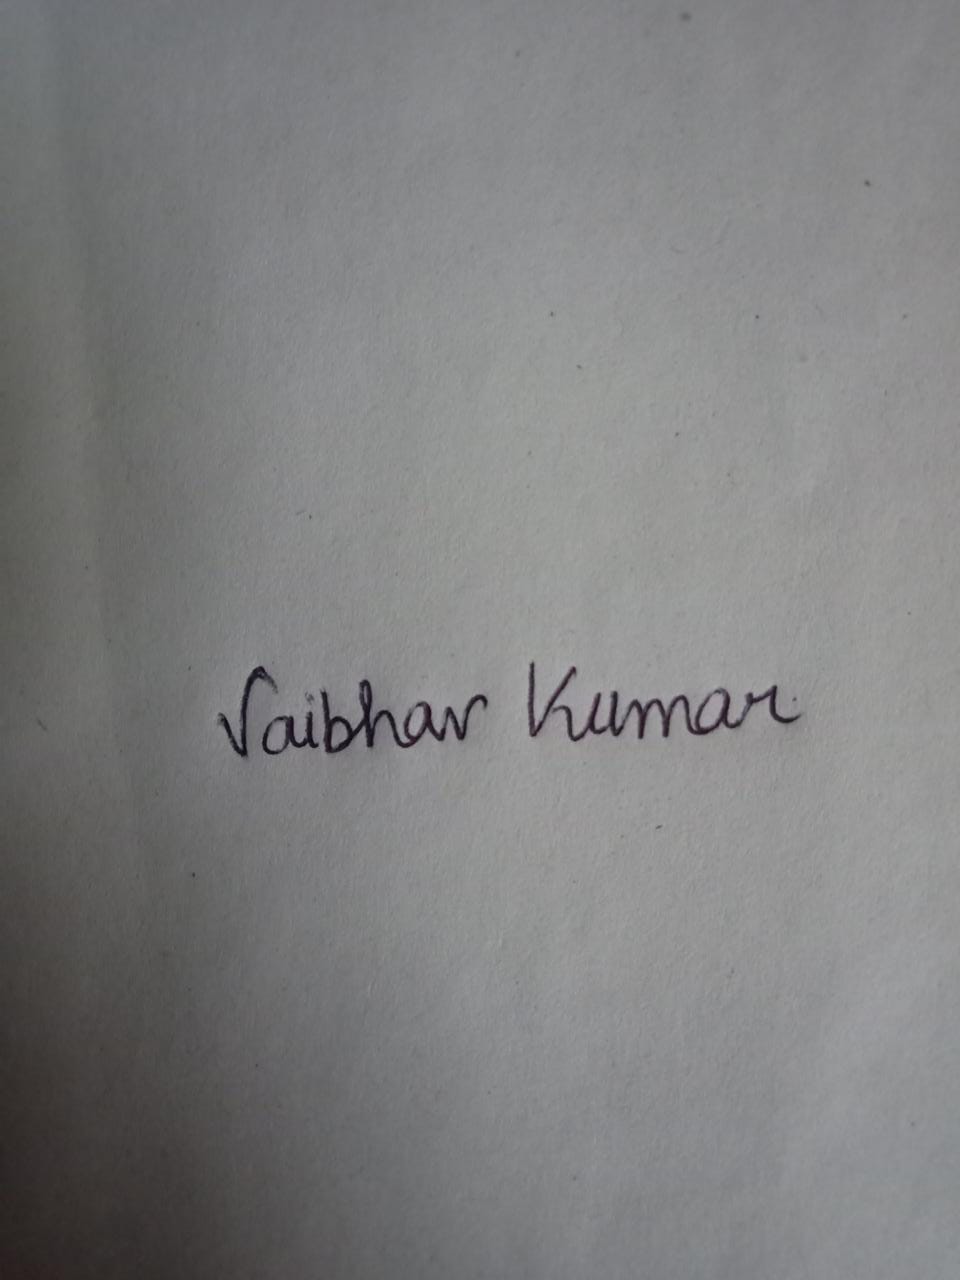 Vaibhav Kumar